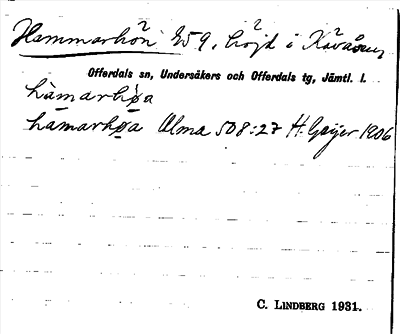 Hammarhön 859, höjd i Kävåsen,
Offerdals sn, Undersåkers och Offerdals tg, Jämtl. l.
hàmarhø̀a
hāmarhø̄a Alma 508:27 H. Geijer 1906
C. LINDBERG 1931.